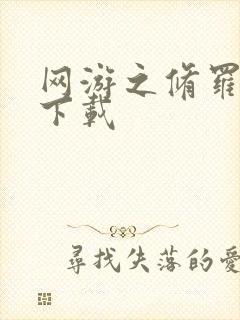 网游之脩羅
下載
尋找失落的愛